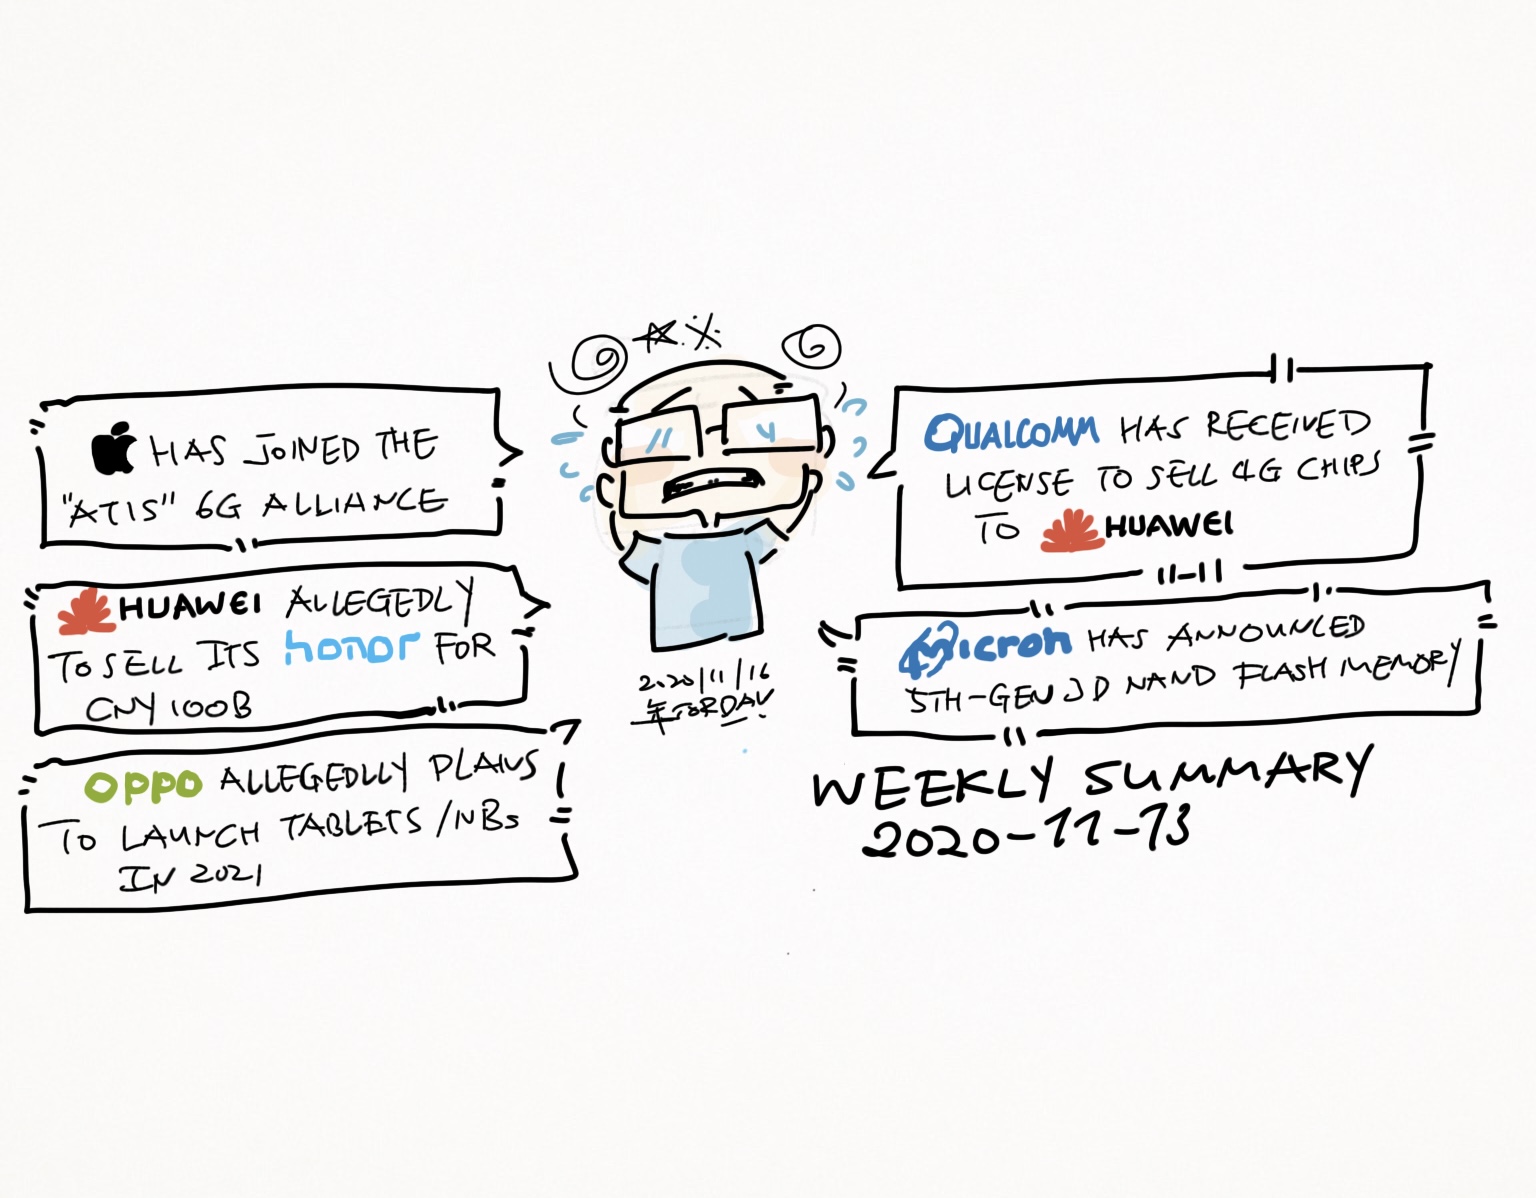 HAS JOINED THE
"ATIS" 6G ALLIANCE
HUAWEI ALLEGEDLY
TO SELL ITS honor FOR
CNY 100B
OPPO ALLEGEDLLY PLANS
TO LAUNCH TABLETS/NBs
IN 2021
2020/11/16
QUALCOMM HAS RECEIVED
LICENSE TO SELL 4G CHIPS
TO HUAWEI
Micron HAS ANNOUNCED
5TH-GEN 3D NAND FLASH MEMORY
WEEKLY SUMMARY
2020-11-13